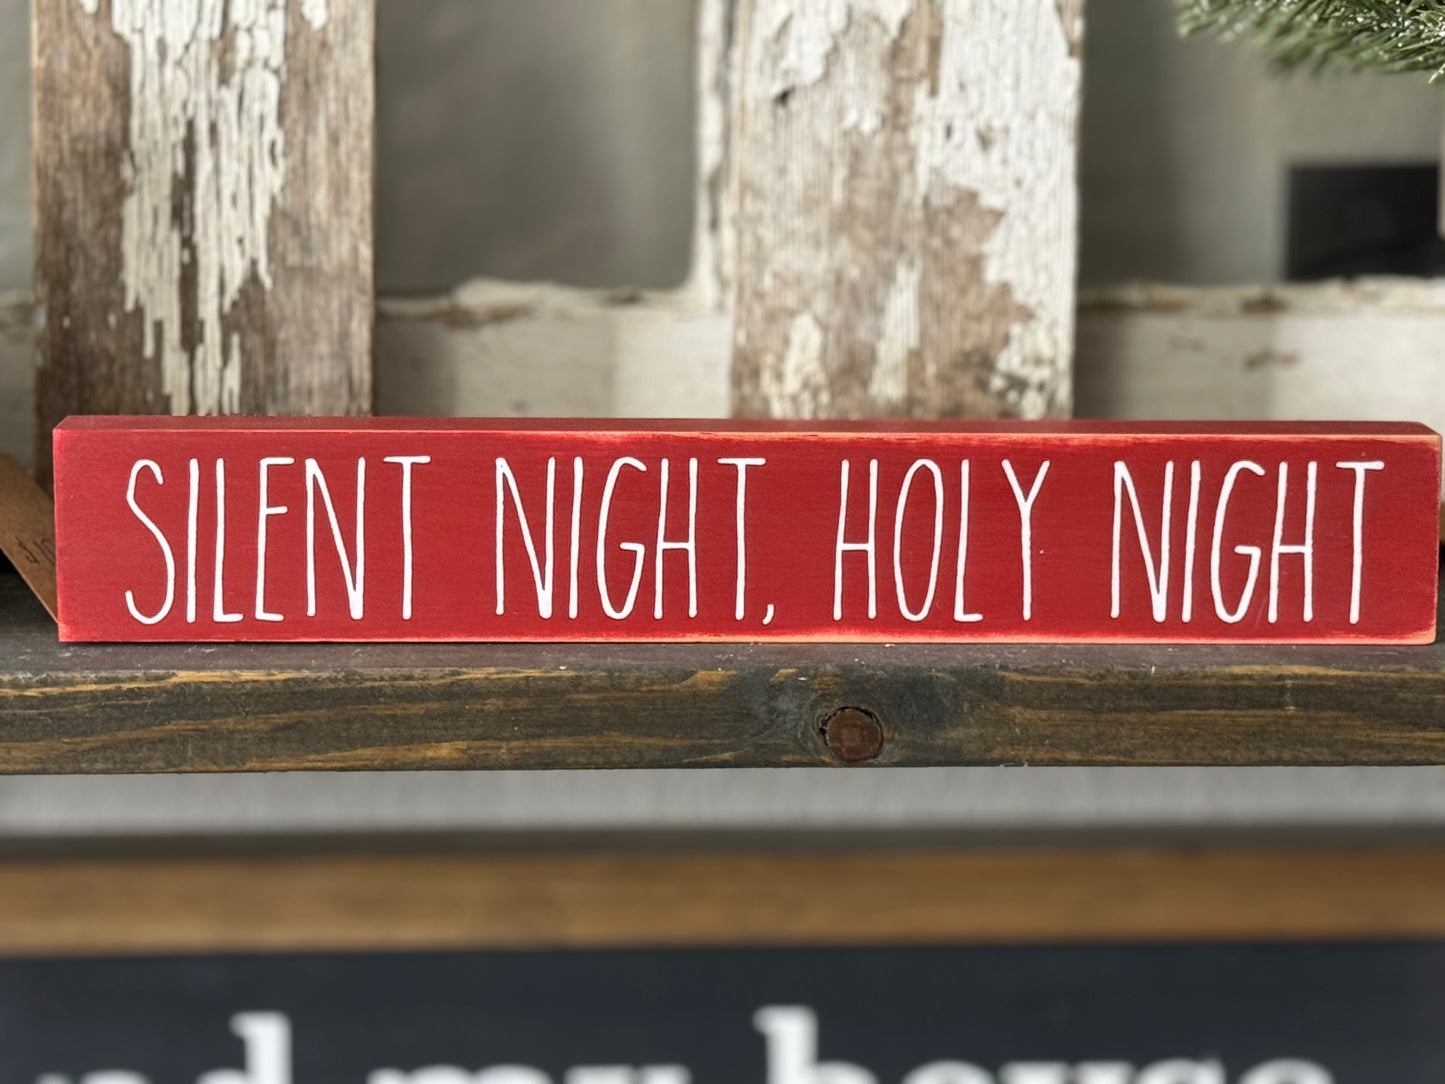 SILENT NIGHT, HOLY NIGHT
my house